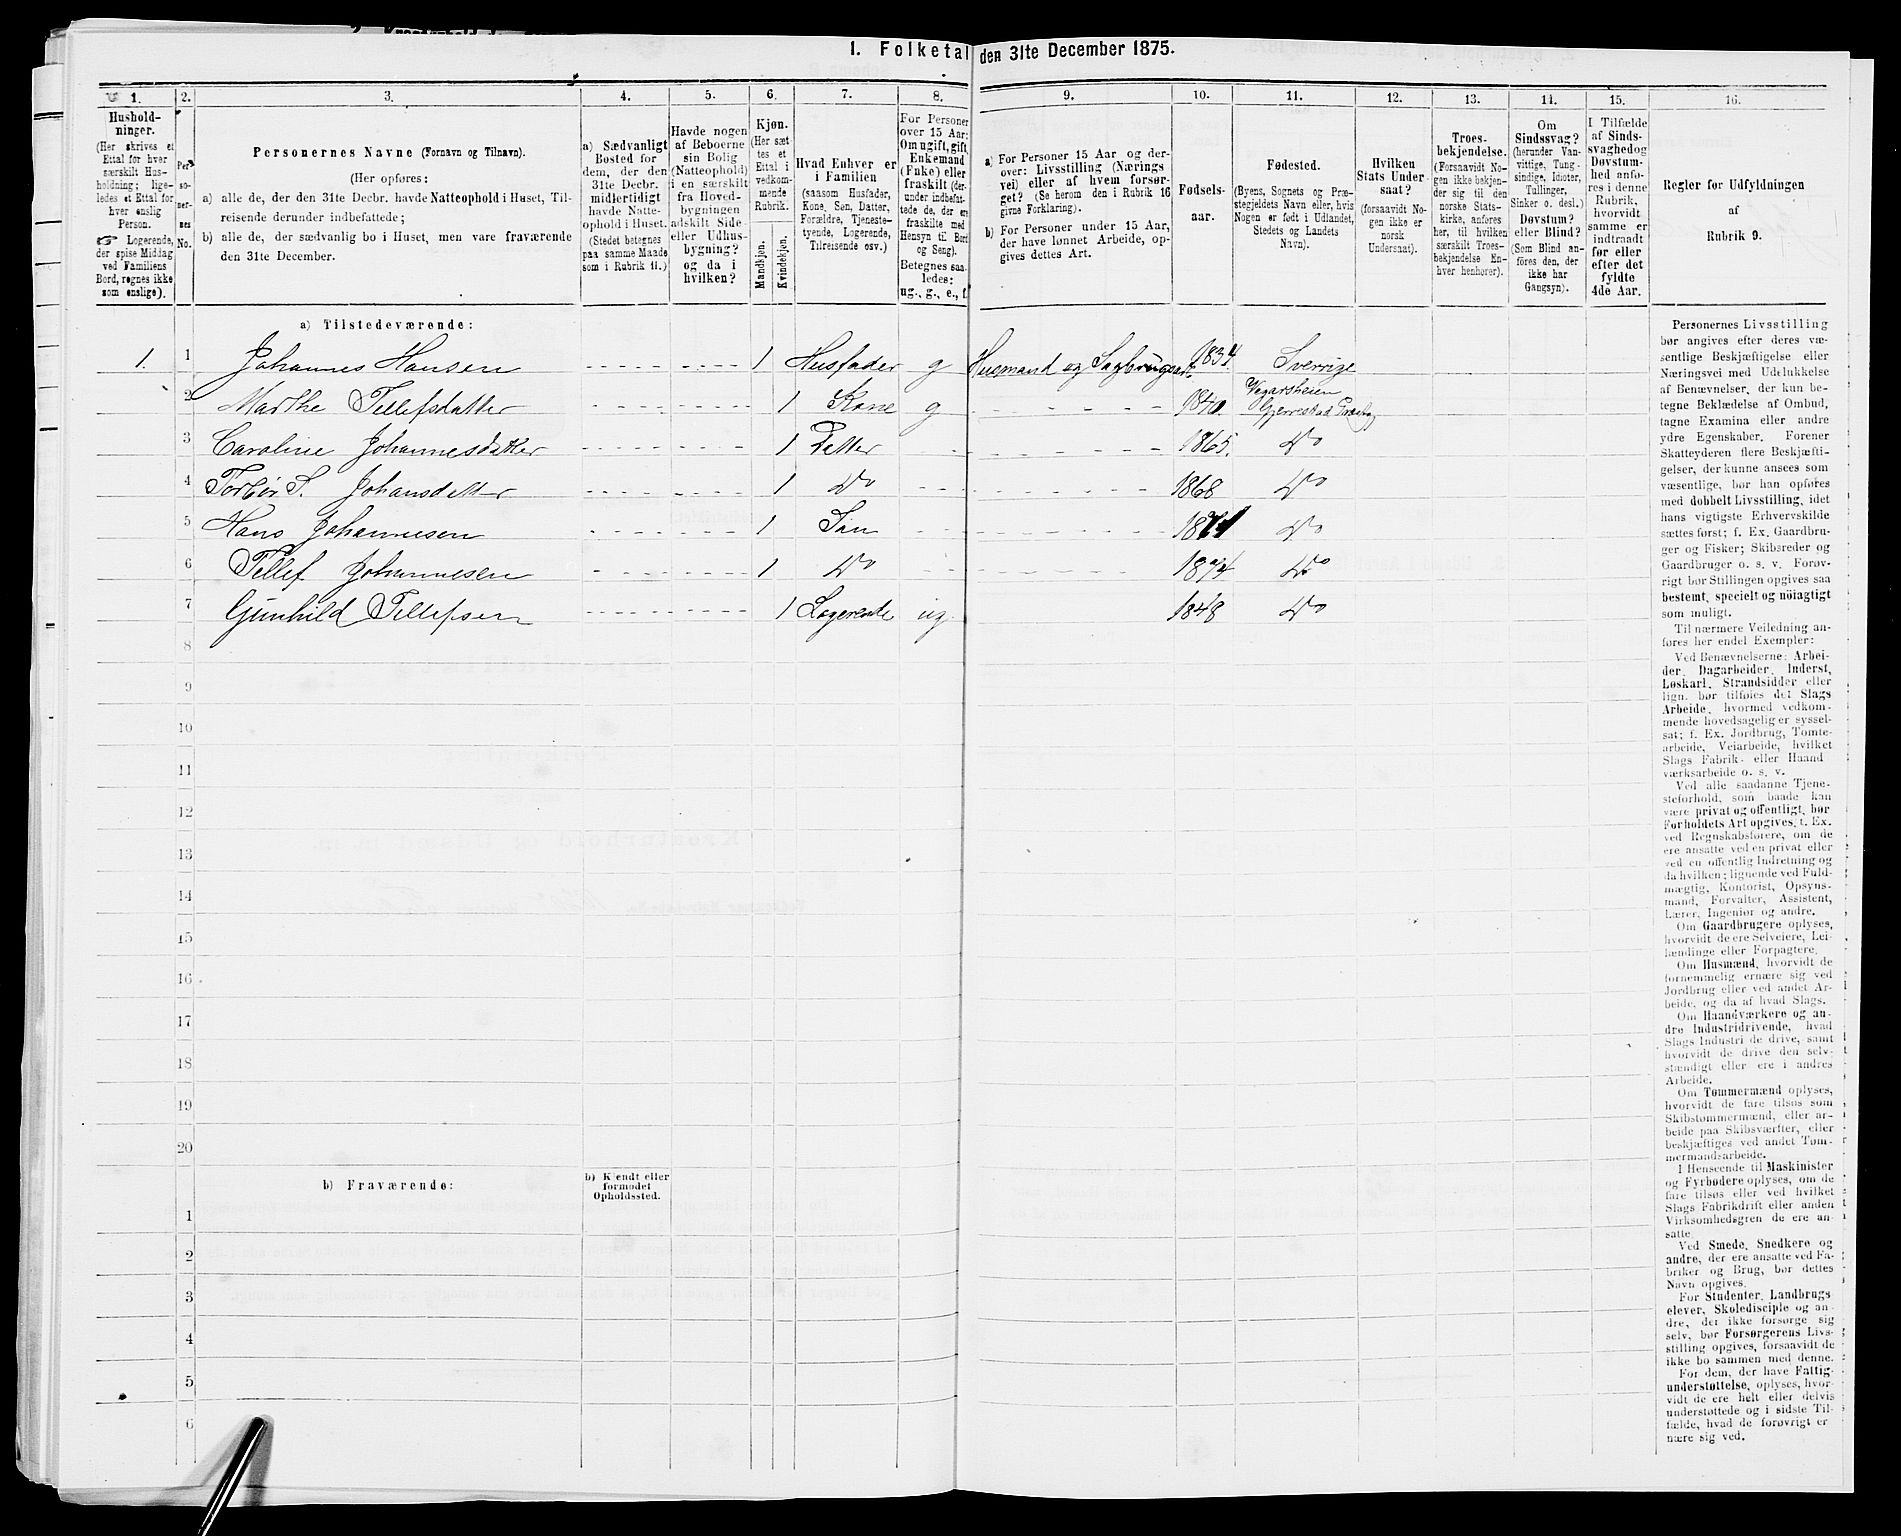 1. Folketal den 31te December 1875.
1. 2. 3. 4. 5. 6. 7. 8. 9. 10. 11. 12. 13. 14. 15. 16.
Hushold-
ninger.
(Her skrives et
Ettal for hver
særskilt Hus-
holdning; lige-
ledes et Ettal for
hver enslig
Person.
☞ Logerende,
der spise Middag
ved Familiens
Bord, regnes ikke
som enslige).
Per-
so-
ner-
nes
No.
Personernes Navne (Fornavn og Tilnavn).
(Her opføres:
a) alle de, der den 31te Decbr. havde Natteophold i Huset, Til-
reisende derunder indbefattede;
b) alle de, der sædvanlig bo i Huset, men vare fraværende
den 31te December.
a) Sædvanligt
Bosted for
dem, der den
31te Decbr.
midlertidigt
havde Natte-
ophold i Huset.
(Stedet betegnes
paa samme Maade
som i Rubrik 11.)
Havde nogen
af Beboerne
sin Bolig
(Natteophold)
i en særskilt
fra Hoved-
bygningen
adskilt Side-
eller Udhus-
bygning?
og da i
hvilken?
Kjøn.
(Her sæt-
tes et
Ettal i
vedkom-
mende
Rubrik.
Mandkjøn.
Kvindekjøn.
Hvad Enhver er
i Familien
(saasom Husfader,
Kone, Søn, Datter,
Forældre, Tjeneste-
tyende, Logerende,
Tilreisende osv.)
For Personer
over 15 Aar:
Om ugift, gift,
Enkemand
(Enke) eller
fraskilt (der-
under indbefat-
tede de, der ere
fraskilte med
Hensyn til Bord
og Seng).
Betegnes saa-
ledes:
ug., g., e., f.
a) For Personer 15 Aar og der-
over: Livsstilling (Nærings-
vei) eller af hvem forsør-
get? (Se herom den i Rubrik 16
givne Forklaring).
b) For Personer under 15 Aar,
der have lønnet Arbeide, op-
gives dettes Art.
Fødsels-
aar.
Fødested.
(Byens, Sognets og Præ-
stegjeldets Navn eller, hvis
Nogen er født i Udlandet,
Stedets og Landets
Navn).
Hvilken
Stats Under-
saat?
(forsaavidt No-
gen ikke er
norsk
Undersaat).
Troes-
bekjendelse.
(Forsaavidt No-
gen ikke bekjen-
der sig til den
norske Stats-
kirke, anføres
her, til hvilken
særskilt Troes-
bekjendelse En-
hver henhører).
Om
Sindssvag?
(herunder Van-
vittige, Tung-
sindige, Idioter,
Tullinger,
Sinker o. desl.)
Døvstum?
eller Blind?
(Som Blind an-
føres den, der
ikke har
Gangsyn).
I Tilfælde
af Sinds-
svaghed og
Døvstum-
hed anfø-
res i denne
Rubrik,
hvorvidt
samme er
indtraadt
før eller
efter det
fyldte
4de Aar.
Regler for Udfyldningen
af
Rubrik 9.
a) Tilstedeværende:
1. 1 Johannes Hansen 1 Husfader g Husmand og Sagbrugsarb. 1834 Sverrige
2 Marthe Tellefsdatter 1 Kone g 1840. Vegarsheien
Gjerrestad Præstgj
3 Caroline Johannesdatter 1 Datter 1865. Do
4 Torbør S. Johansdatter 1 Do 1868 Do
5 Hans Johannesen 1 Søn 1871 Do
6 Tellef Johannesen 1 Do 1874 Do
7 Gunhild Tellefsen 1 Logerende ug 1848 Do
8
9
10
11
12
13
14
15
16
17
18
19
20
b) Fraværende:
b) Kjendt eller
formodet
Opholdssted.
1
2
3
4
5
6
Personernes Livsstilling
bør angives efter deres væ-
sentlige Beskjæftigelse eller
Næringsvei med Udelukkelse
af Benævnelser, der kun be-
tegne Beklædelse af Ombud,
tagne Examina eller andre
ydre Egenskaber. Forener
Skatteyderen flere Beskjæfti-
gelser, der kunne ansees som
væsentlige, bør han opføres
med dobbelt Livsstilling, idet
hans vigtigste Erhvervskilde
sættes først; f. Ex. Gaardbru-
ger og Fisker; Skibsreder og
Gaardbruger o. s. v. Forøv-
rigt bør Stillingen opgives saa
bestemt, specielt og nöiagtigt
som muligt.
Til nærmere Veiledning an-
føres her endel Exempler:
Ved Benævnelserne: Arbei-
der, Dagarbeider, Inderst,
Løskarl, Strandsidder eller
lign. bør tilføies det Slags
Arbeide, hvormed vedkom-
mende hovedsagelig er syssel-
sat; f. Ex. Jordbrug, Tomte-
arbeide, Veiarbeide, hvilket
Slags Fabrik- eller Haand-
værksarbeide o. s. v.
Ved alle saadanne Tjene-
steforhold, som baade kan
være privat og offentligt, bør
Forholdets Art opgives, f. Ex.
ved Regnskabsførere, om de
ere ansatte ved en privat eller
ved en offentlig Indretning og
da hvilken; lignende ved Fuld-
mægtig, Kontorist, Opsyns-
mand, Forvalter, Assistent,
Lærer, Ingeniør og andre.
Om Gaardbrugere oplyses,
hvorvidt de ere Selveiere, Lei-
lændinge eller Forpagtere.
Om Husmænd, hvorvidt de
fornemmelig ernære sig ved
Jordbrug eller ved andet Ar-
beide, og da af hvad Slags.
Om Haandværkere og an-
dre Industridrivende, hvad
Slags Industri de drive, samt
hvorvidt de drive den selv-
stændigt eller ere i andres
Arbeide.
Om Tømmermænd oplyses,
hvorvidt de fare tilsøs som
Skibstømmermænd, eller ar-
beide paa Skibsværfter, eller
beskjæftiges ved andet Tøm-
mermandsarbeide.
I Henseende til Maskinister
og Fyrbødere oplyses, om de
fare tilsøs eller ved hvilket
Slags Fabrikdrift eller anden
Virksomhedsgren de ere an-
satte.
Ved Smede, Snedkere og
andre, der ere ansatte ved Fa-
briker og Brug, bør dettes
Navn opgives.
For Studenter, Landbrugs-
elever, Skoledisciple og an-
dre, der ikke forsørge sig
selv, bør Forsørgerens Livs-
stilling opgives, forsaavidt de
ikke bo sammen med denne.
For dem, der have Fattig-
understøttelse, oplyses, hvor-
vidt de ere helt eller delvis
understøttede og i sidste Til-
fælde, hvad de forøvrigt er-
nære sig ved.